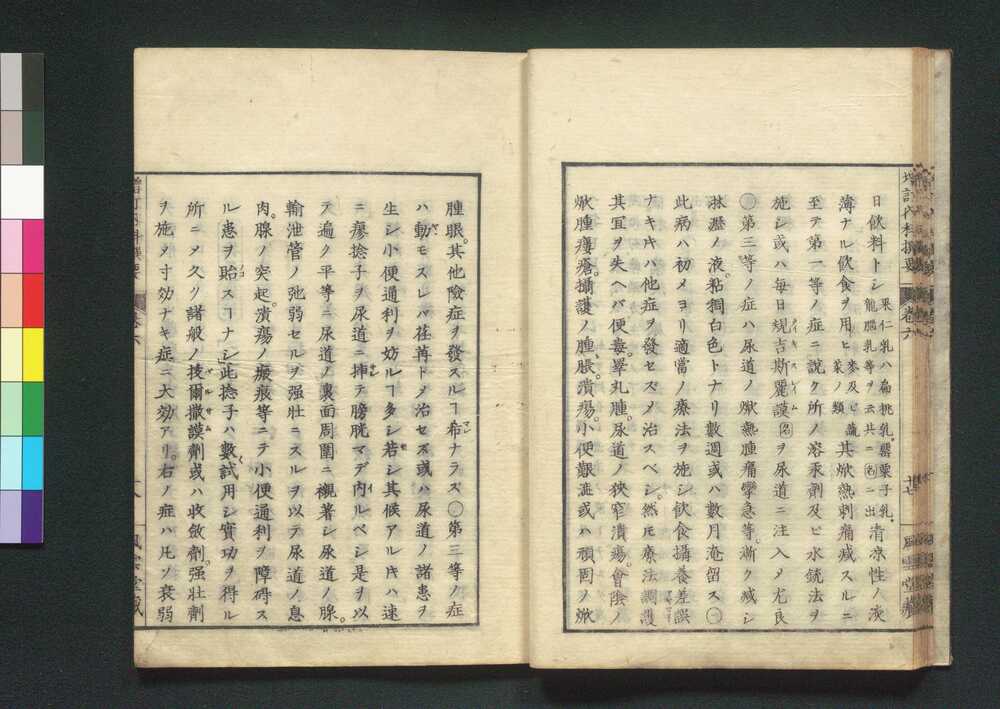 日飲料トシ 果仁乳ハ扁桃乳罌粟子乳龍脳乳等ヲ云共ニ名ニ出 清凉性ノ液
薄ナル飲食ヲ用ヒ 麥及ヒ蔬菜ノ類 其焮熱刺痛減スルニ
至テ第一等ノ症ニ説ク所ノ溶汞劑及ヒ水銃法ヲ
施シ或ハ毎日規吉斯麗謨名ヲ尿道ニ注入メ尤良
○第三等ノ症ハ尿道ノ焮熱腫痛攣急等漸ク減シ
淋瀝ノ液粘稠白色トナリ數週或ハ數月淹留ス○
此病ハ初メヨリ適當ノ療法ヲ施シ飲食攝養差誤
ナキ片ハ他症ヲ發セスメ治スベシ。然𪜈療法調護
其宜ヲ失ヘバ便毒。睪丸腫。尿道ノ狹窄潰瘍。會陰ノ
焮腫膿瘡。攝護ノ腫脹潰瘍。小便艱澁或ハ頑固ノ焮
腫眼。其他險症ヲ發スルヿ希ナラズ○第三等ノ症
ハ動モスレバ荏苒トメ治セズ或ハ尿道ノ諸患ヲ
生シ小便通利ヲ妨ルヿ多シ若シ其候アル片ハ速
ニ瘳捻子ヲ尿道ニ挿テ膀胱マデ内ルベシ是ヲ以
テ遍ク平等ニ尿道ノ裏面周圍ニ襯著シ尿道ノ腺。
輸泄管ノ弛弱セルヲ强壯ニスルヲ以テ尿道ノ息
肉。腺ノ突起。潰瘍ノ瘢痕等ニテ小便通利ヲ障碍ス
ル患ヲ貽スヿナシ此捻子ハ數試用シ實功ヲ得ル
所ニメ久ク諸般ノ拔爾撒謨劑或ハ收斂劑。强壯劑
ヲ施メ寸効ナキ症ニ大効アリ。右ノ症ハ凡ソ衰弱